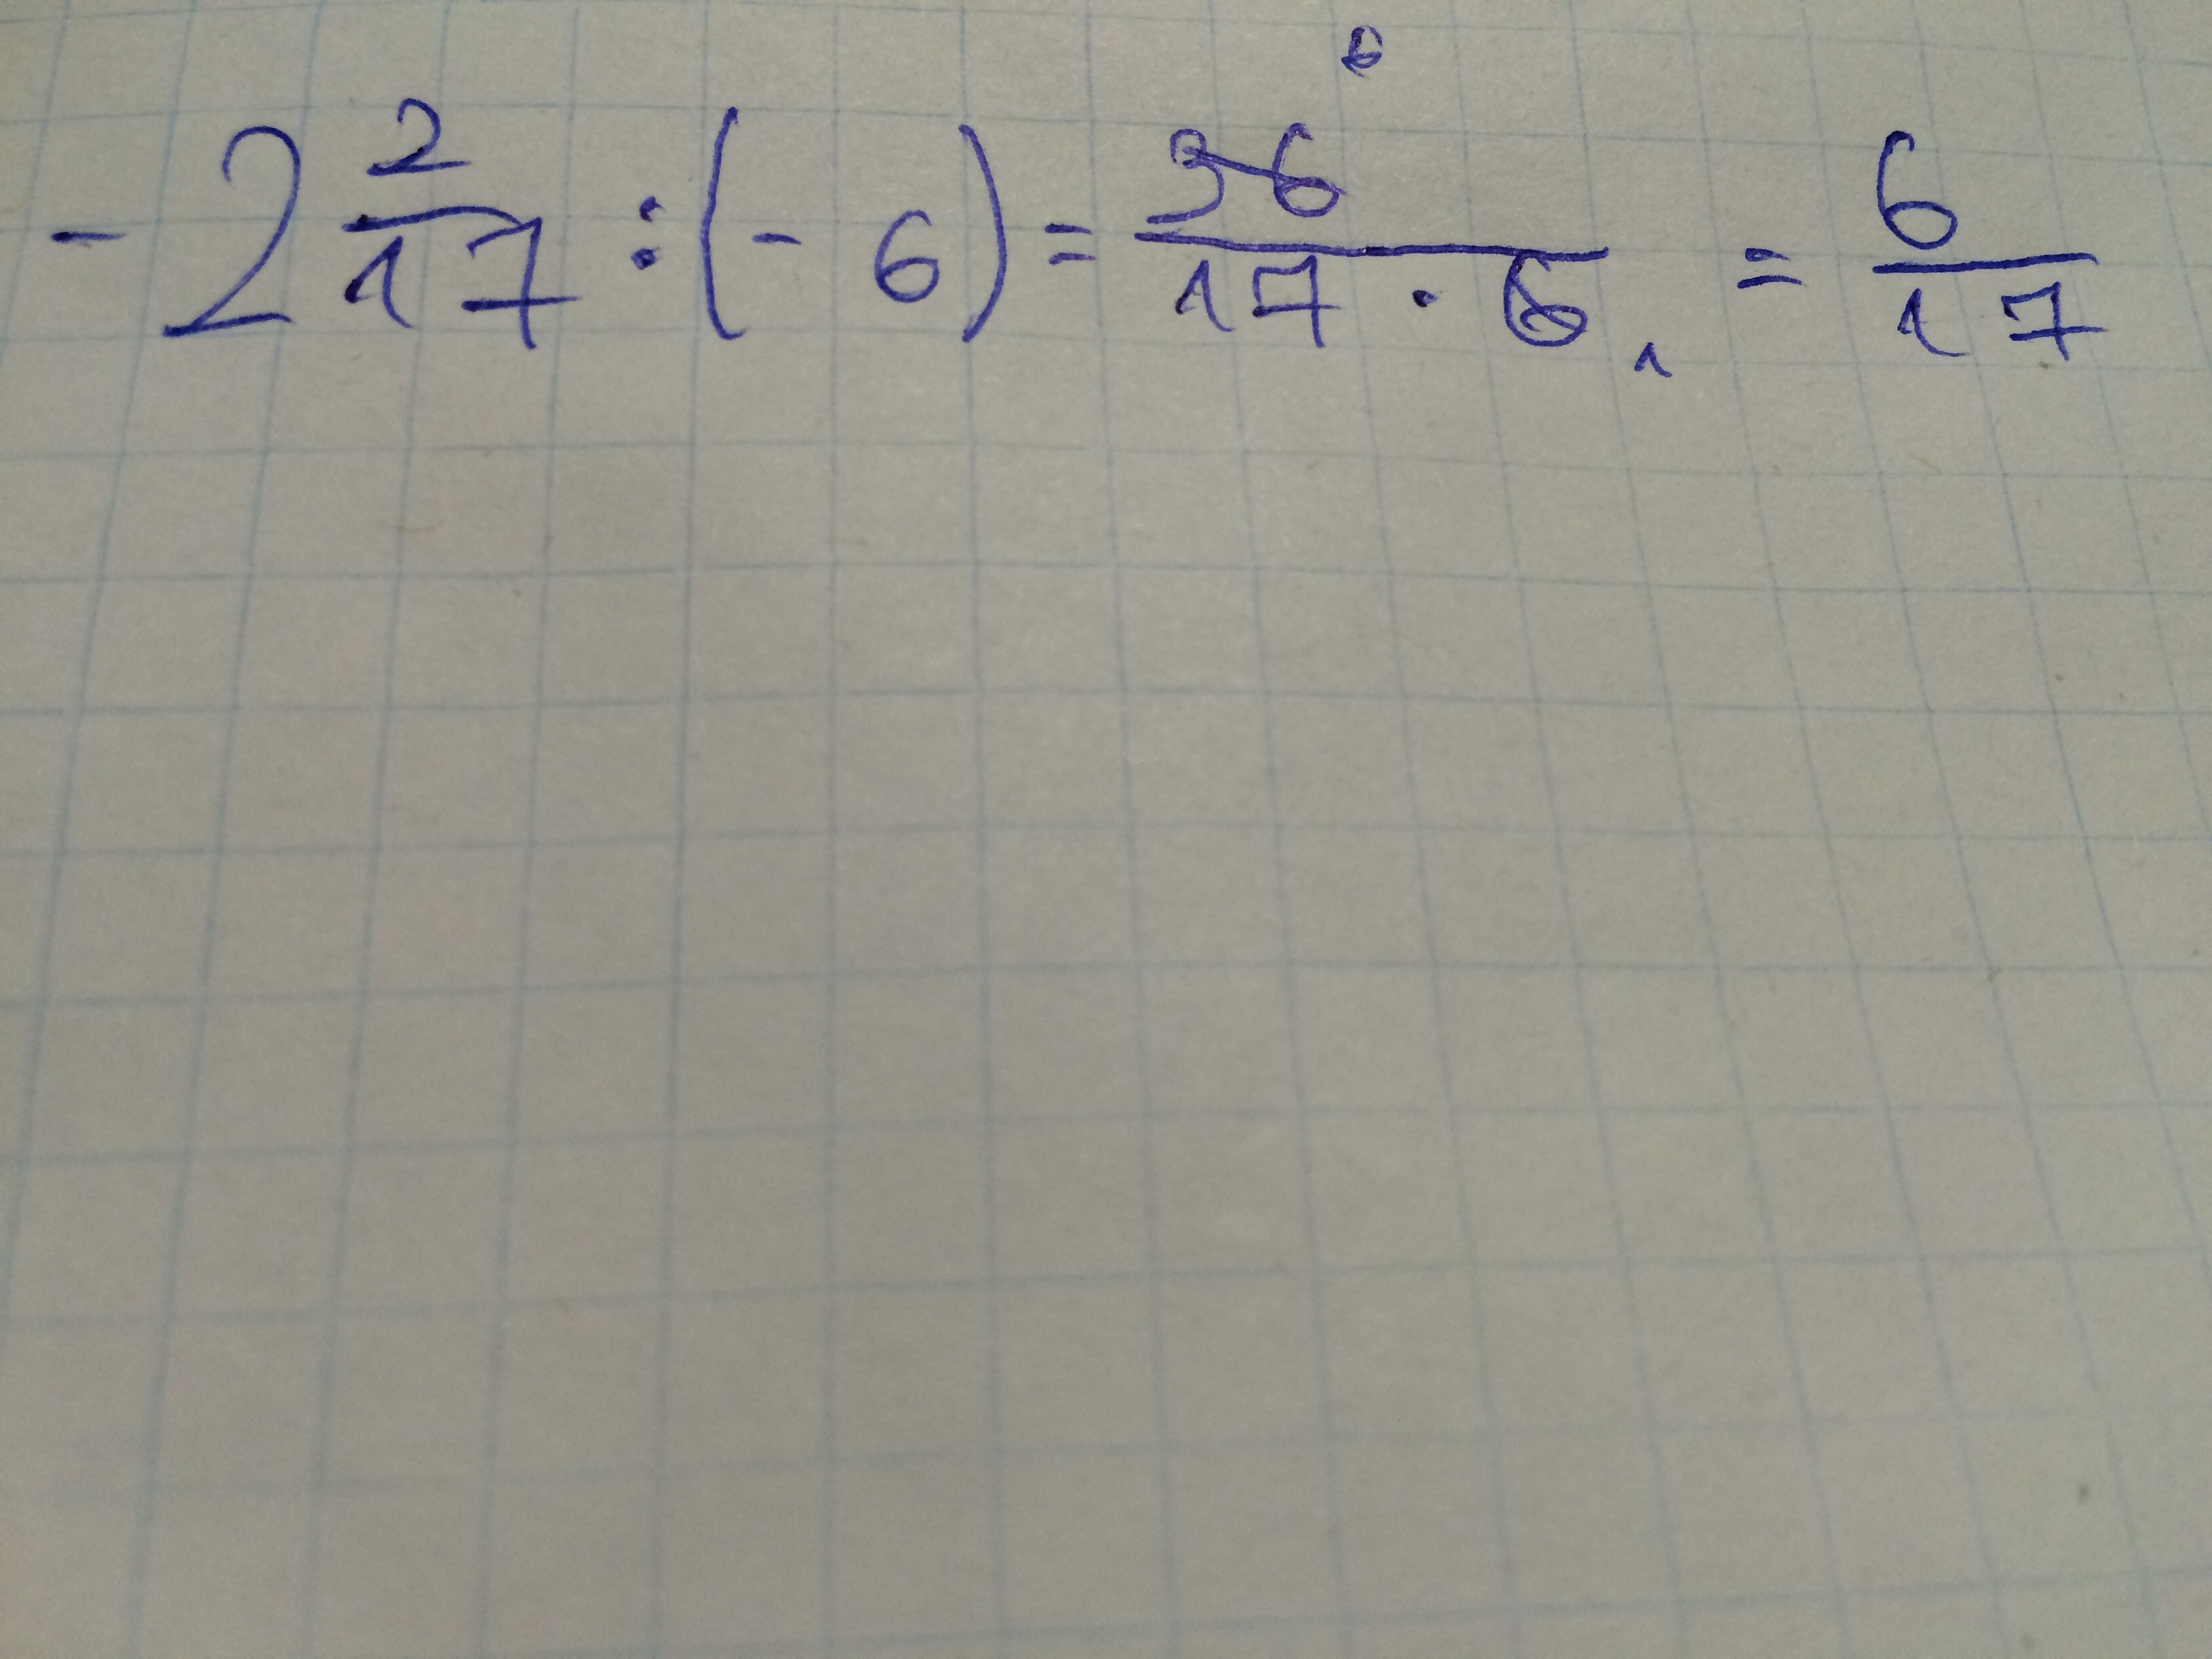 - 2 2/17 : (- 6) = 36 6 / 17 · 6 1 = 6/17